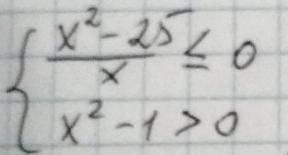 { (x² - 25)/x ≤ 0
x² - 1 > 0